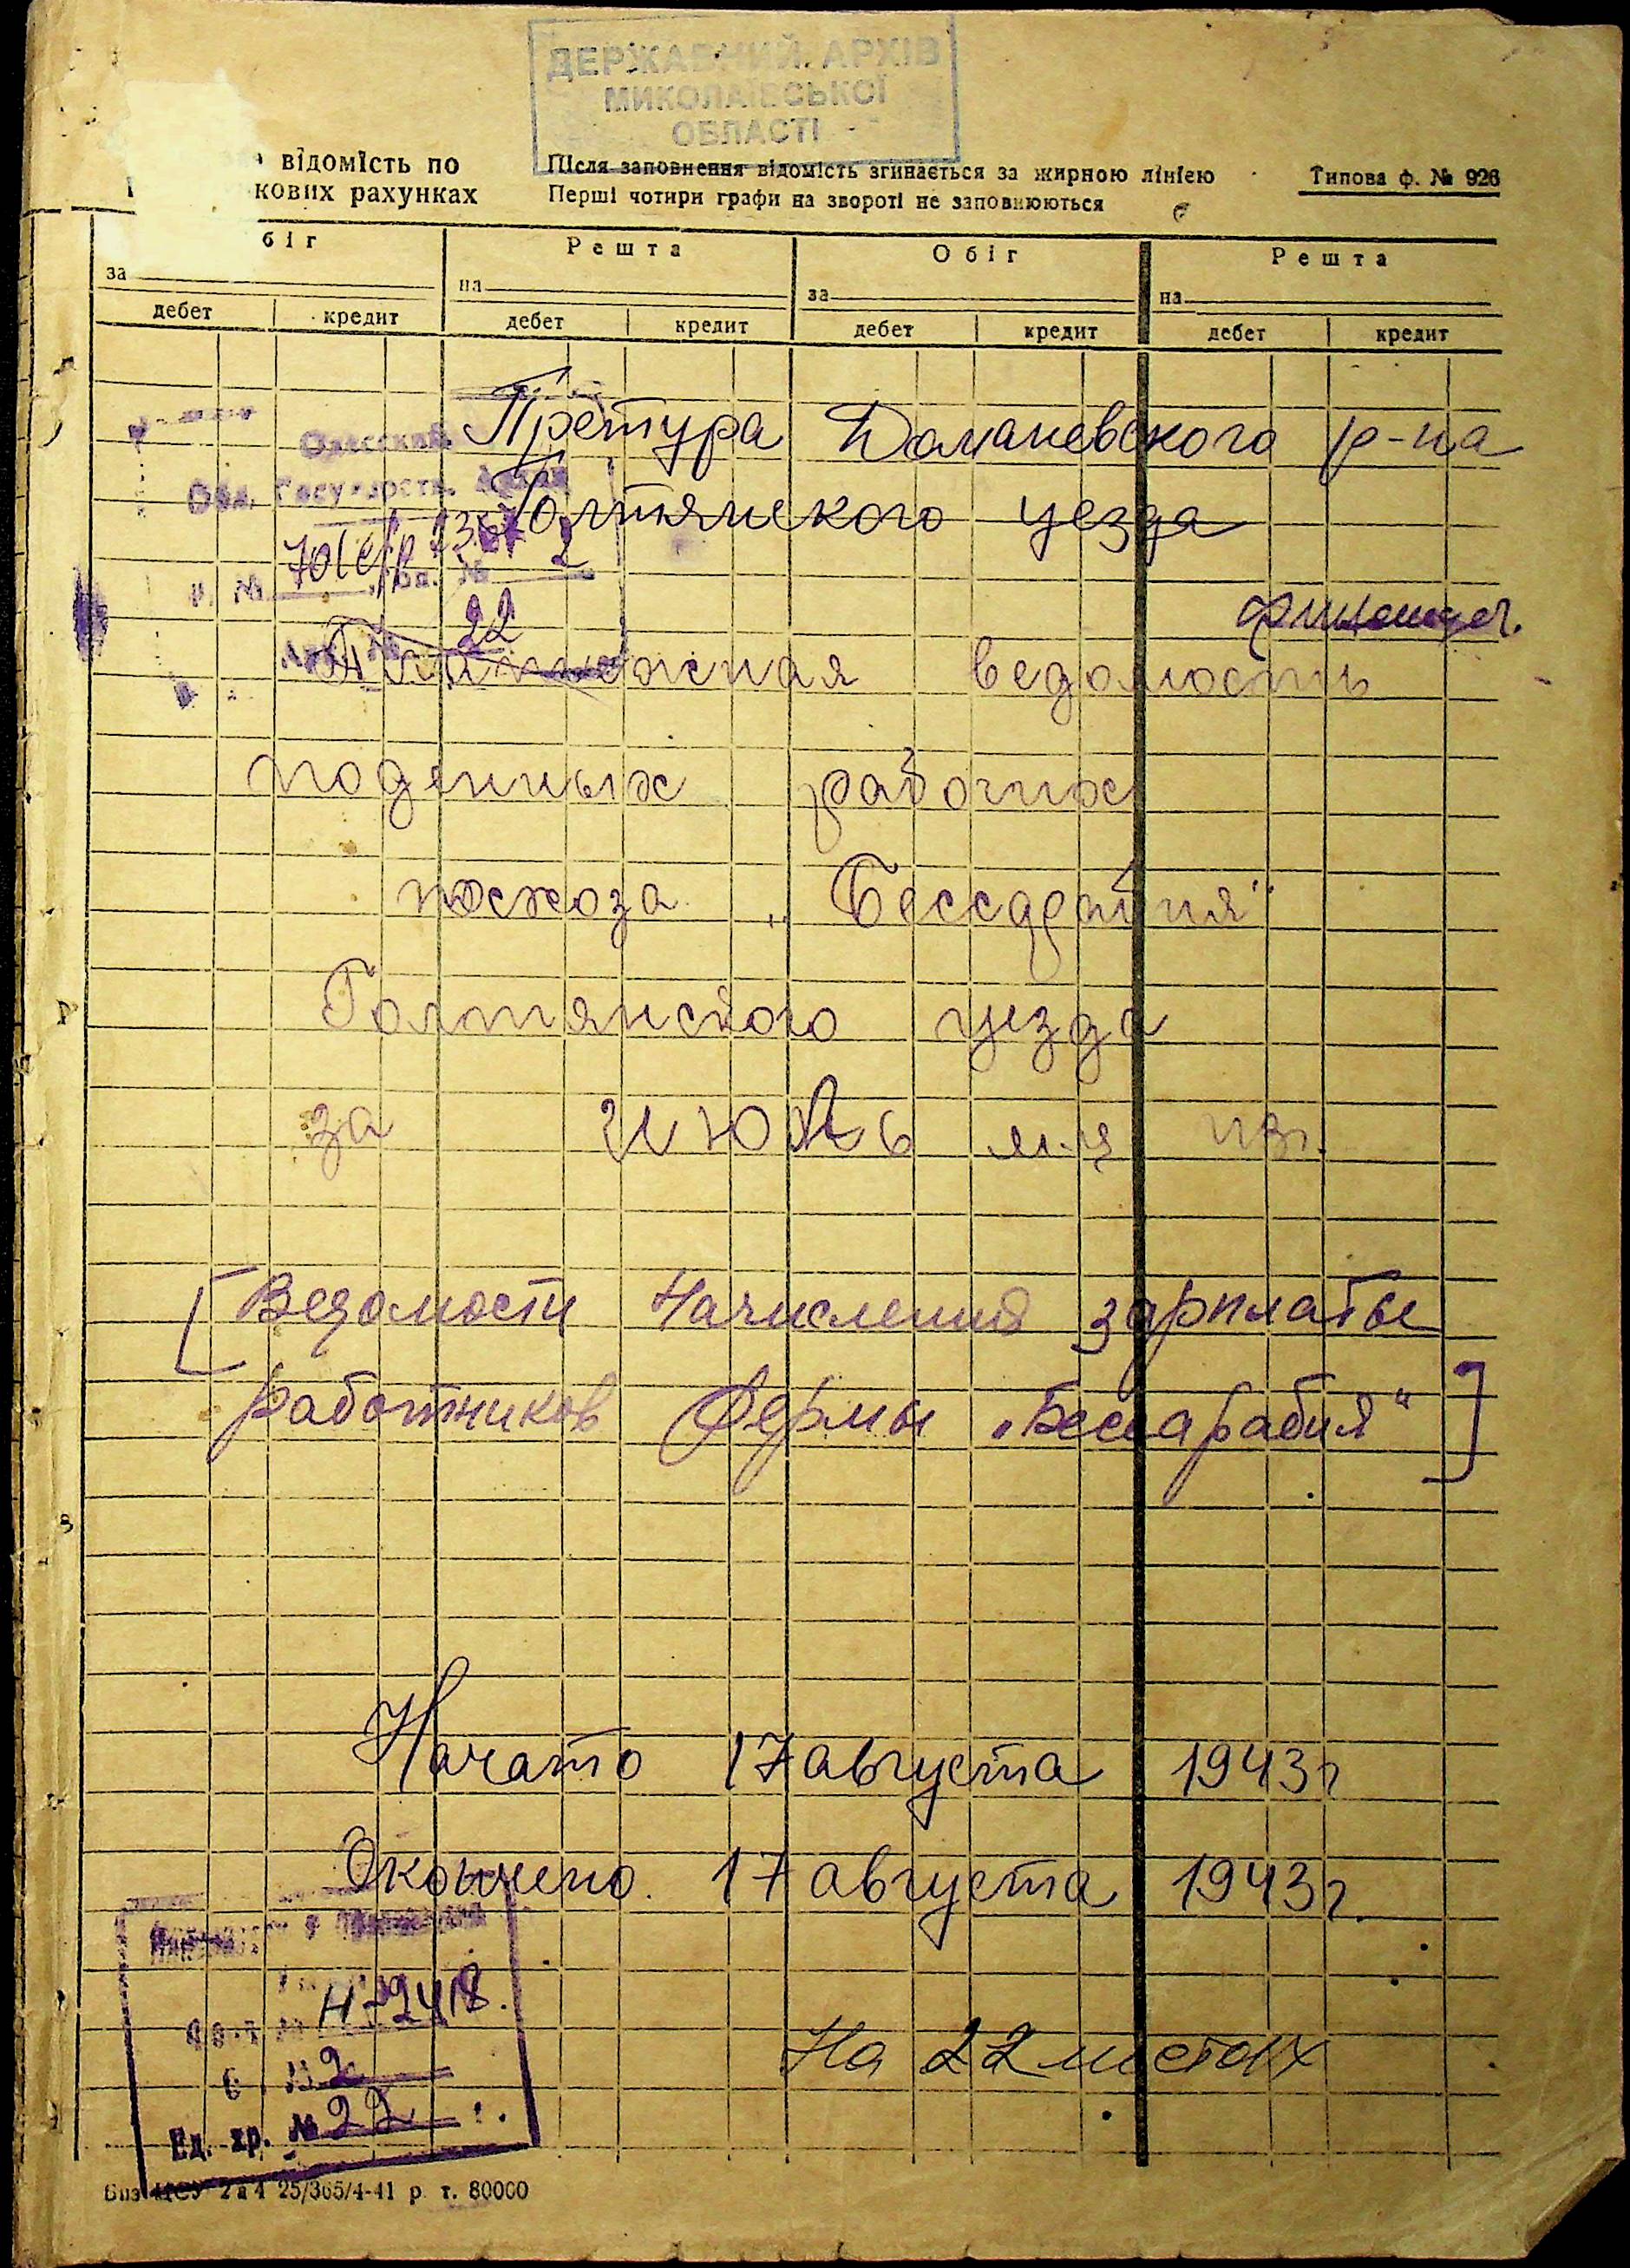 ДЕРЖАВНИЙ АРХІВ
МИКОЛАЇВСЬКОЇ
ОБЛАСТІ
відомість по
кових рахунках
Після заповнення відомість згинається за жирною лінією
Перші чотири графи на звороті не заповнюються
Типова ф. № 926
біг Решта Обіг Решта
за на за на
дебет кредит дебет кредит дебет кредит дебет кредит
Претура Доманевского р-на
Одесский
Обл. Государств. Архив
Голтянского уезда
2
22
ведомость
поденных рабочих
"Бессарабия"
Голтянского уезда
за июль м-ц
[Ведомости начисления зарплаты
работников фермы „Бессарабия“]
Начато 17 августа 1943 г
Окончено 17 августа 1943 г.
Н-2418.
№ 2
Ед. хр. № 22
На 22 листах
25/365/4-41 р. т. 80000